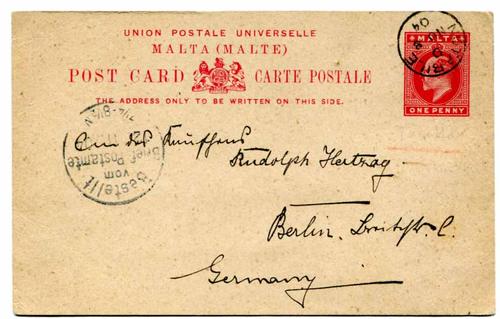 UNION POSTALE UNIVERSELLE
MALTA (MALTE)
POST CARD
CARTE POSTALE
THE ADDRESS ONLY TO BE WRITTEN ON THIS SIDE.
MALTA
ONE PENNY
04
Bestellt
vom
Brief Postamte
An das Kaufhaus
Rudolph Hertzog
Berlin. Breitestr. C.
Germany